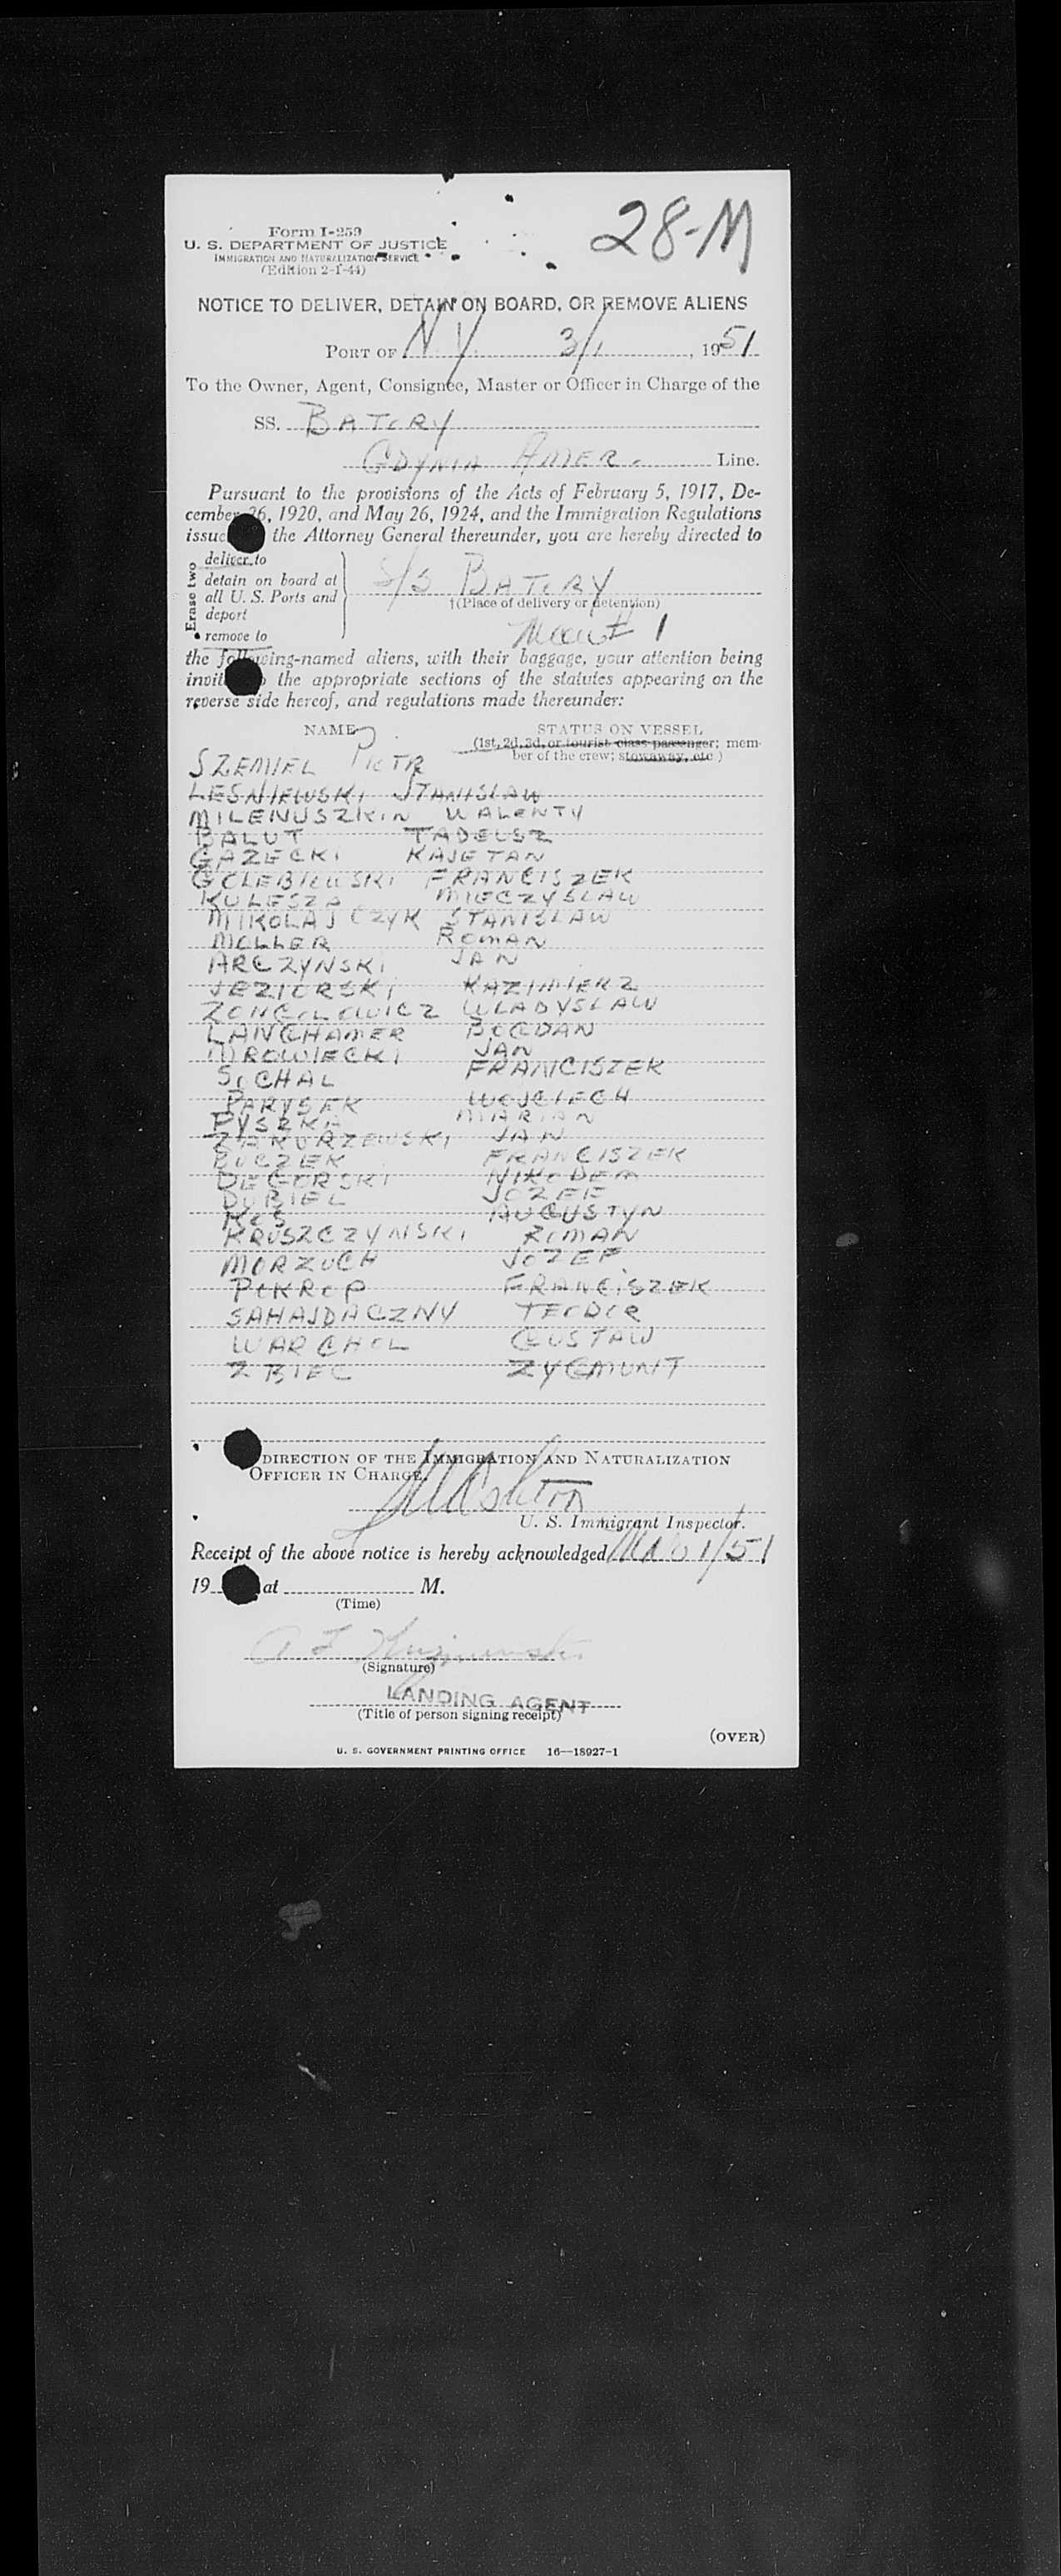 28-M
Form I-259
U. S. DEPARTMENT OF JUSTICE
IMMIGRATION AND NATURALIZATION SERVICE
(Edition 2-1-44)
NOTICE TO DELIVER, DETAIN ON BOARD, OR REMOVE ALIENS
PORT OF N Y 3/1, 1951
To the Owner, Agent, Consignee, Master or Officer in Charge of the
SS. BATORY
GDYNIA AMER. Line.
Pursuant to the provisions of the Acts of February 5, 1917, De-
cember 26, 1920, and May 26, 1924, and the Immigration Regulations
issue the Attorney General thereunder, you are hereby directed to
Erase two
deliver to
detain on board at
all U. S. Ports and
deport
remove to
S/S BATORY
†(Place of delivery or detention)
1
the following-named aliens, with their baggage, your attention being
invit the appropriate sections of the statutes appearing on the
reverse side hereof, and regulations made thereunder:
NAME STATUS ON VESSEL
(1st, 2d, 3d, or tourist class passenger; mem-
ber of the crew; stowaway, etc.)
SZEMIEL PIOTR
LESNIEWSKI STANISLAW
MILENUSZKIN WALENTY
BALUT TADEUSZ
GAZECKI KAJETAN
GOLEBIOWSKI FRANCISZEK
KULESZA MIECZYSLAW
MIKOLAJCZYK STANISLAW
MOLLER ROMAN
ARCZYNSKI JAN
JEZIORSKI KAZIMIERZ
ZONGOLOWICZ WLADYSLAW
LANGHAMER BOGDAN
MROWIECKI JAN
SOCHAL FRANCISZEK
PARYSEK WOJCIECH
PYSZKA MARIAN
ZAKORZEWSKI JAN
BOCZEK FRANCISZEK
DEGORSKI NIKODEM
DUBIEL JOZEF
KOS AUGUSTYN
KRUSZCZYNSKI ROMAN
MORZUCH JOZEF
POKROP FRANCISZEK
SAHAJDACZNY TEODOR
WARCHOL GUSTAW
ZBIEC ZYGMUNT
DIRECTION OF THE IMMIGRATION AND NATURALIZATION
OFFICER IN CHARGE
U. S. Immigrant Inspector.
Receipt of the above notice is hereby acknowledged 1/51
19 at M.
(Time)
(Signature)
LANDING AGENT
(Title of person signing receipt)
(OVER)
U. S. GOVERNMENT PRINTING OFFICE 16—18927-1